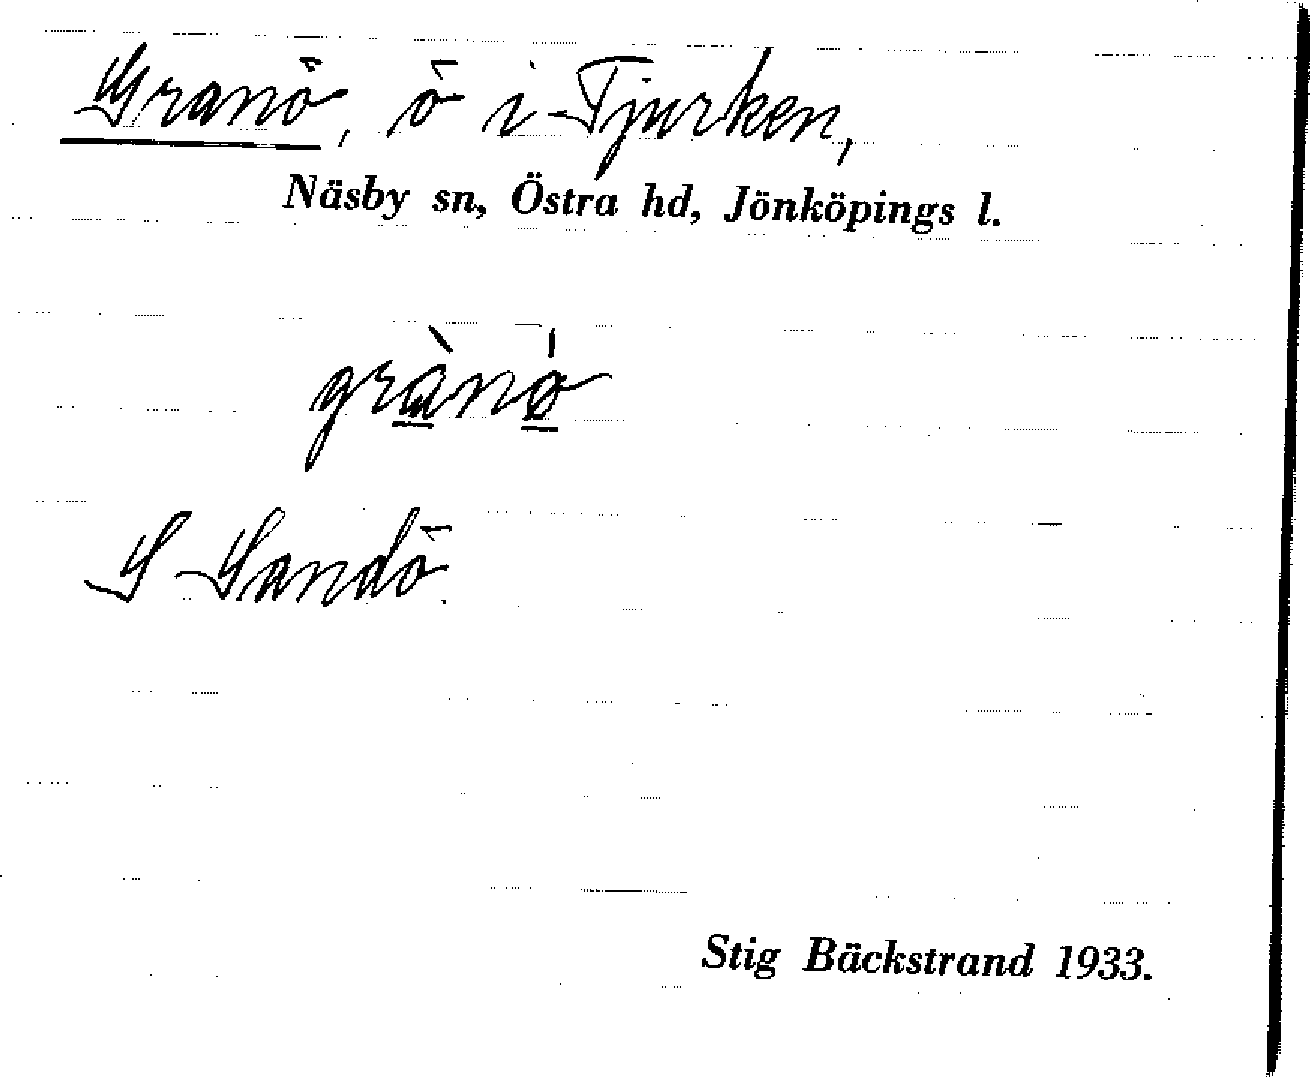 Granö, ö i Tjurken,
Näsby sn, Östra hd, Jönköpings l.
grànö
S Sandö.
Stig Bäckstrand 1933.